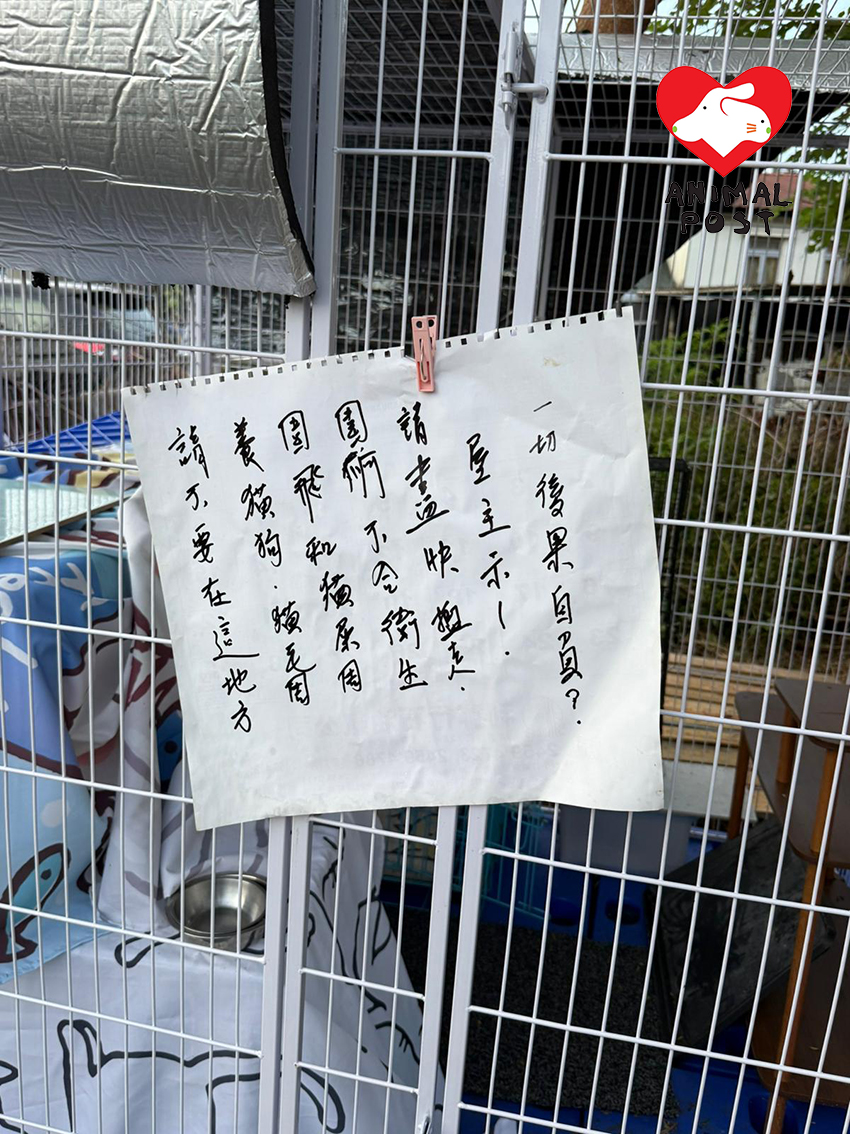 請不要在這地方
養猫狗．猫毛周
圍飛和猫屎周
圍痾不合衛生
請盡快搬走．
屋主示！．
一切後果自負？．
ANIMAL
POST